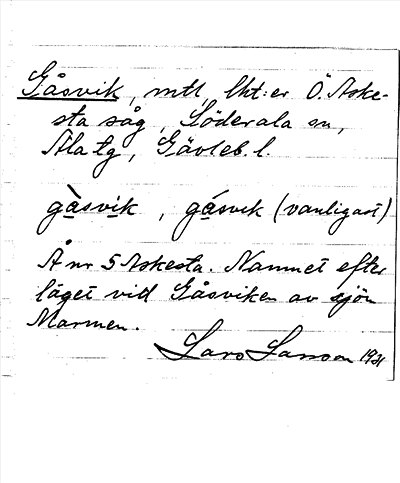 Gåsvik, mtl, lht:er Ö. Aske-
sta såg, Söderala sn,
Ala tg, Gävleb. l.
gåsvik, gåsvik (vanligast)
Å nr 5 Askesta. Namnet efter
läget vid Gåsviken av sjön
Marmen.
Lars Larsson 1921